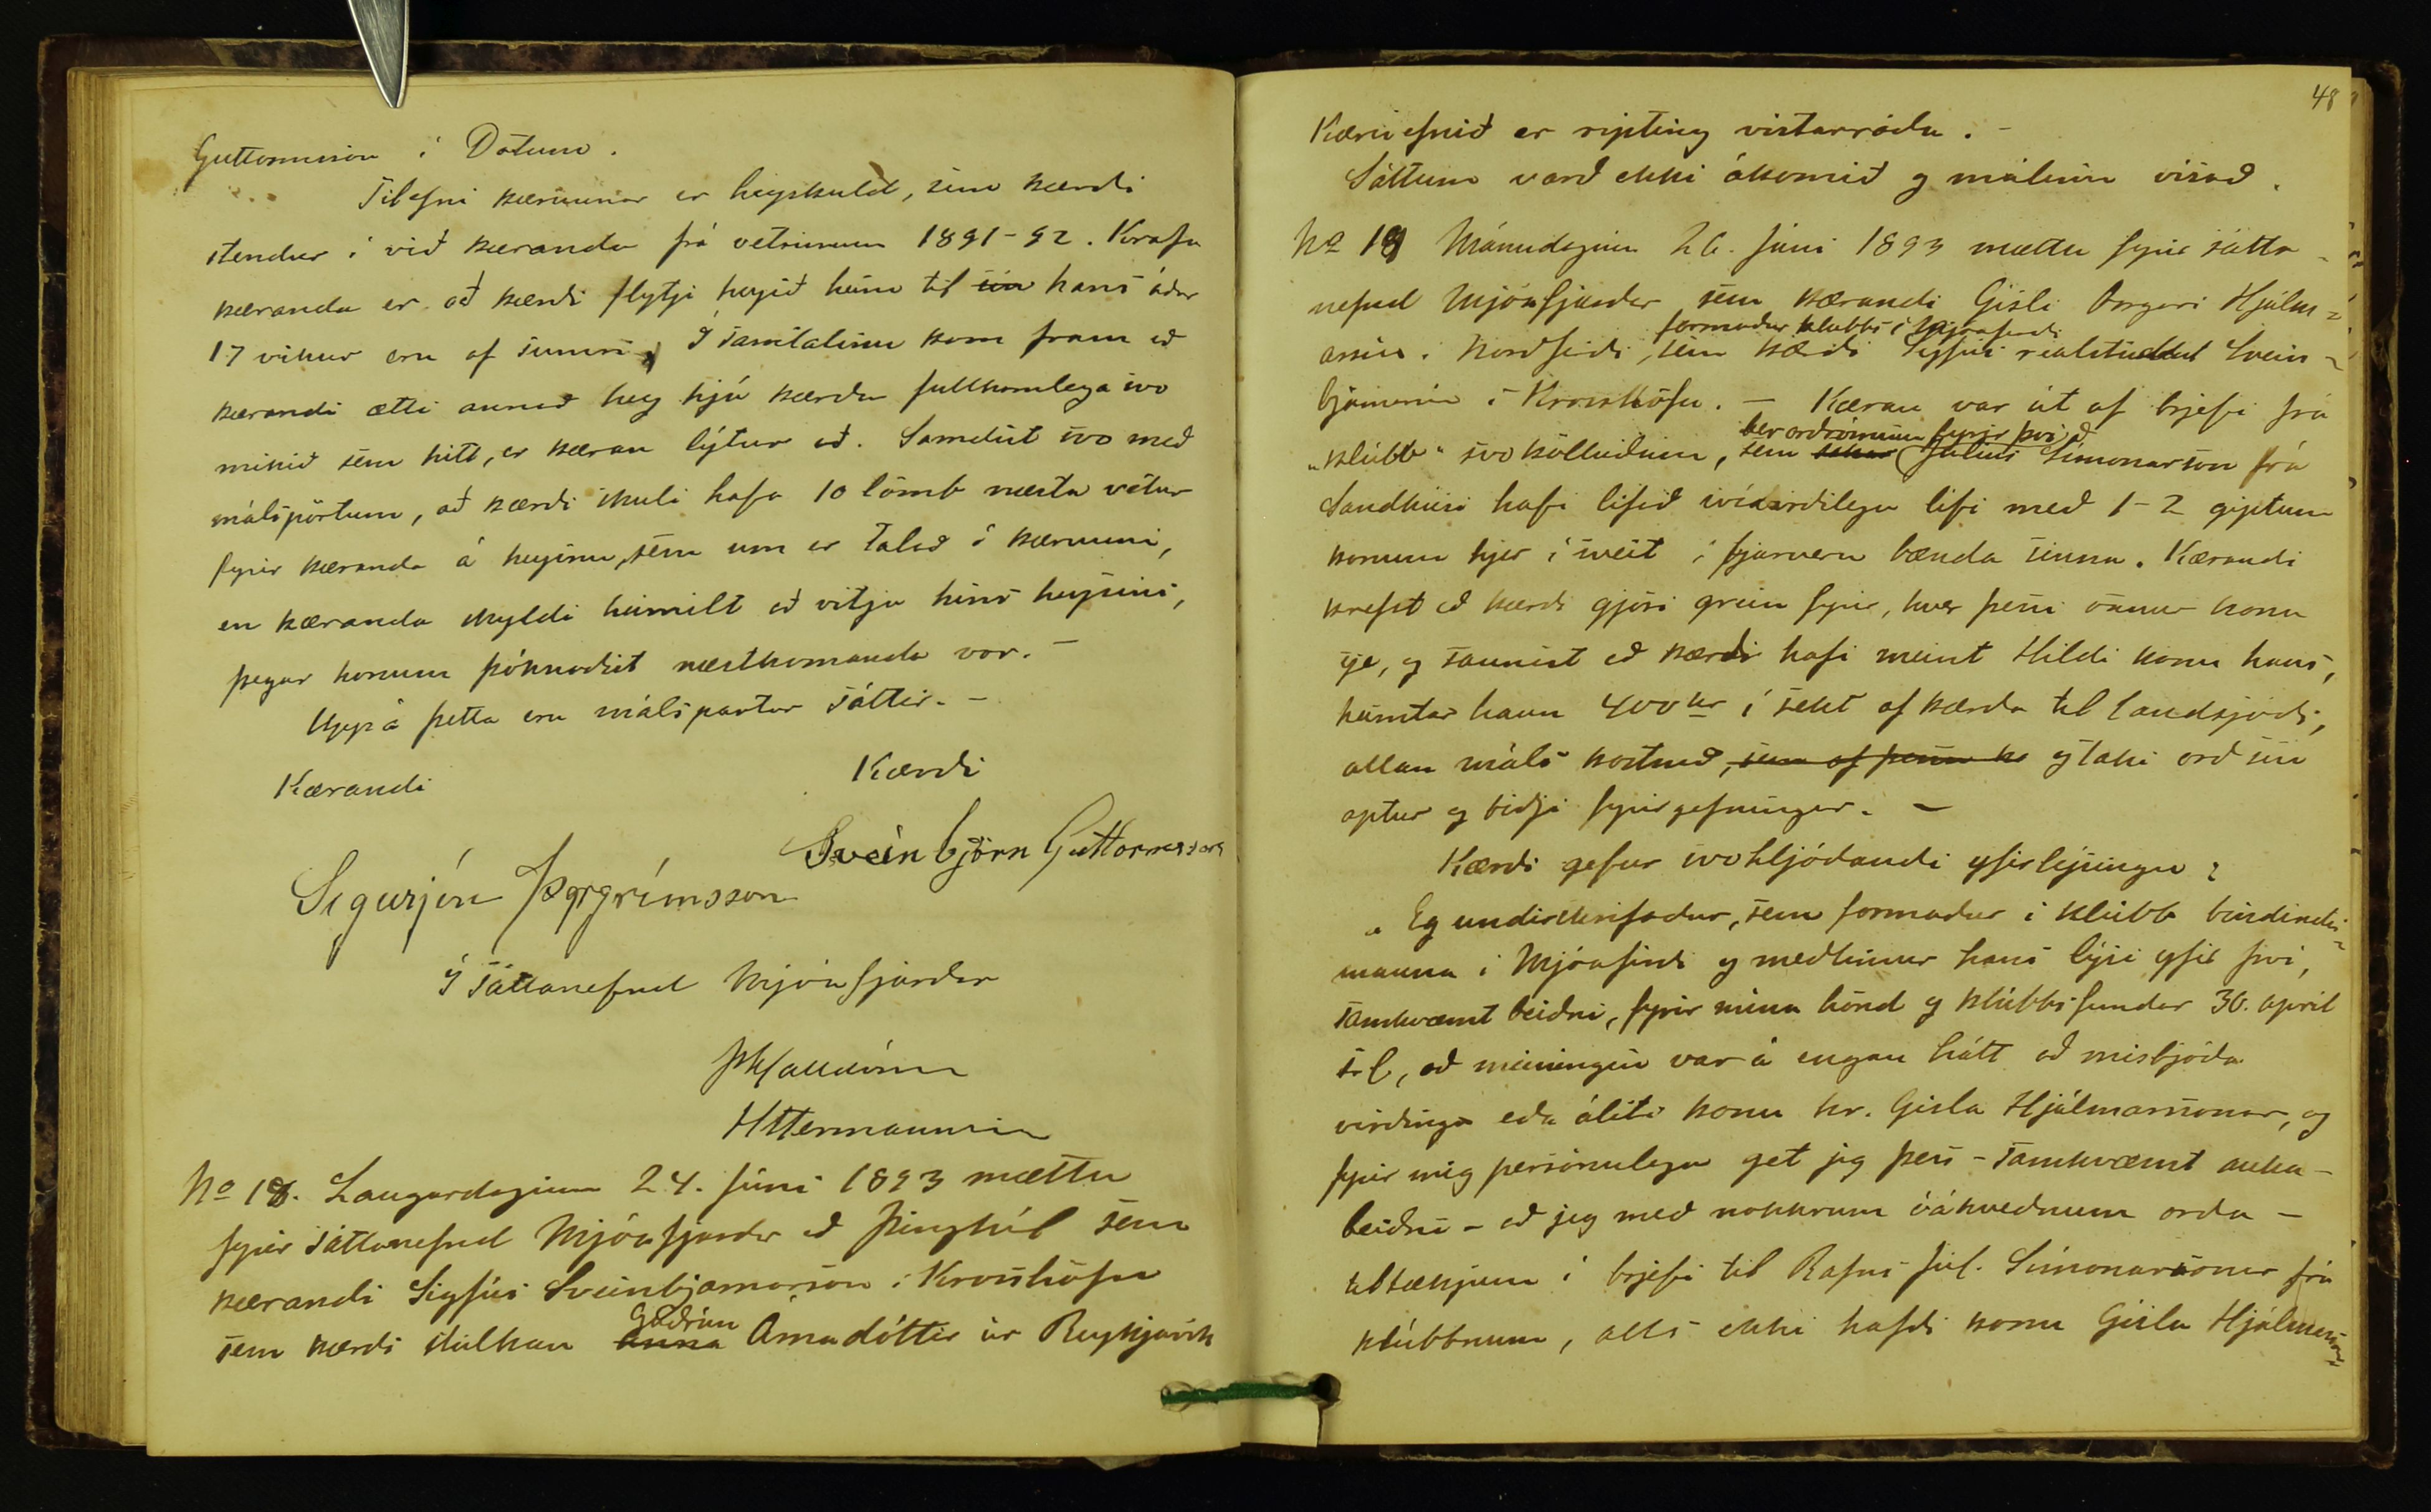 Guttormsson í Dölum.
Tilefni kærunnar er heyskuld, sem kærdi
stendur í við kæranda frá vetrinum 1891-92. Krafa
kæranda er að kærdi flytji heyið heim til sín hans áður
17 vikur eru af sumri, Í samtalinu kom fram að
kærandi ætti annað hey hjá kærda fullkomlega svo
mikið sem hitt, er kæran lýtur að. Samdist svo með
málspörtum, að kærdi skuli hafa 10 lömb næsta vetur
fyrir kæranda á heyinu, sem um er talað í kærunni,
en kæranda skyldi heimilt að vitja hins heysins,
þegar honum þóknadist næstkomanda vor. -
Uppá þetta eru málspartar sáttir. -
Kærandi Kærdi
Sveinbjörn Guttormsson
Sigurjón Þorgrímsson
Í sáttanefnd Mjóafjarðar
HHermannsson
No 18. Laugardaginn 24. Júní 1893 mættu
fyrir sáttanefnd Mjóafjardar að Þinghól sem
kærandi Sigfús Sveinbjarnarson í Krosshöfn
Guðrún
sem kærdi stúlkan Anna Árnadóttir úr Reykjavík
48
Kæruefnið er ripting vistarráda. -
Sáttum varð ekki ákomið og málinu vísað.
No 19 Mánudaginn 26. Júní 1893 mættu fyrir sátta-
nefnd Mjóafjardar sem kærandi Gísli Asgeri Hjálm-
formadur klubbs í Mjóafirdi
arsson í Nordfirdi, sem kærdi Sigfús realstudent Svein-
bjarnarson í Krosshöfn. - Kæran var út af brjefi frá
ber ordróminn fyrir því að
"klúbb" svo kölluðum, sem sakar Júlíus Símonarson frá
Sandhúsi hafi lifið ósiðferðilegu lifi með 1-2 giptum
konum hjer í sveit í fjarveru bænda sinna. Kærandi
krefst að kærdi gjöri grein fyrir, hver þessi önnur kona
sje, og sannist að kærdi hafi meint Hildi konu hans,
heimtar hann 400 kr í sekt af kærda til landsjóds,
allan máls kostnað, sem af þessu ko og taki orð sín
aptur og bidji fyrirgefningar. -
Kærdi gefur svohljódandi yfirlýsingu:
"Eg undirskrifadur, sem formadur í klúbb bindindis-
manna í Mjóafirdi og medlimur hans lýsi yfir því,
samkvæmt beidni, fyrir mína hönd og klúbbsfundar 30. april
s. l., að meiningin var á engan hátt að misbjóda
virdingu eda áliti konu hr. Gísla Hjálmarssonar, og
fyrir mig persónulega get jeg þess - samkvæmt auka-
beidni - að jeg með nokkrum óákveðnum orda -
tiltækjum í brjefi til Rafns Júl. Símonarsonar frá
klúbbnum, alls ekki hafdi konu Gísla Hjálmarssonar